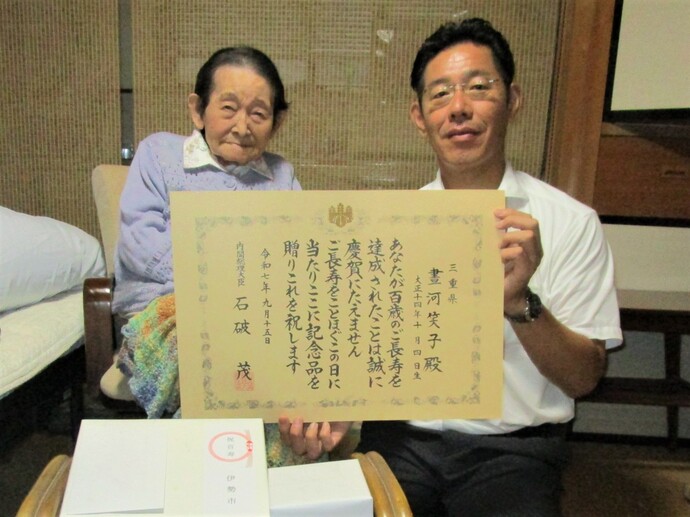 三重県
晝河笑子殿
大正十四年十月四日生
あなたが百歳のご長寿を
達成されたことは誠に
慶賀にたえません
ご長寿をことほぐこの日に
当たりここに記念品を
贈りこれを祝します
令和七年九月十五日
内閣総理大臣 石破 茂
祝百歳
伊勢市